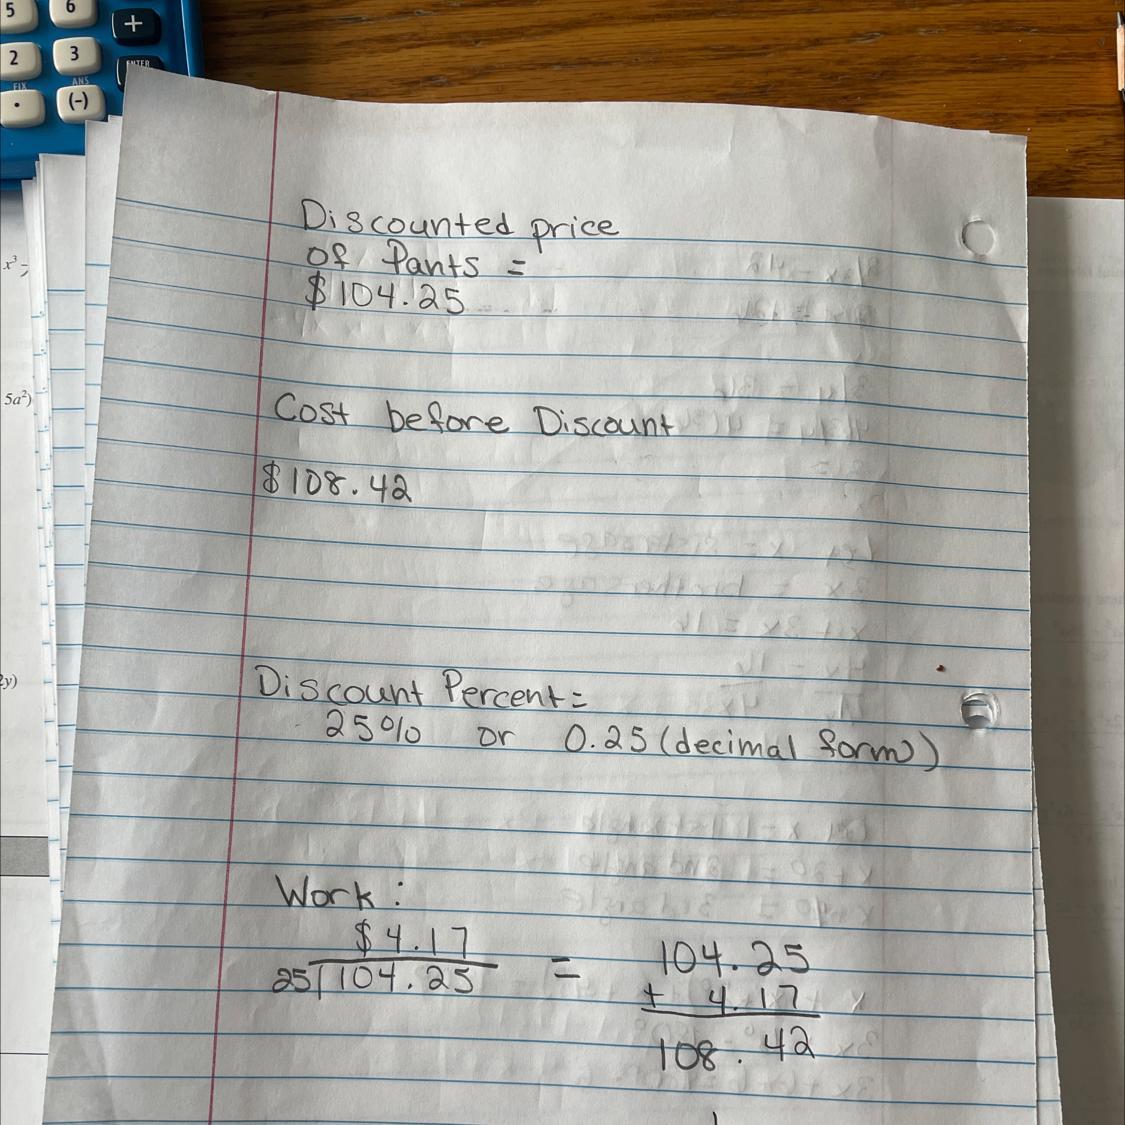 5 6 +
2 3 ENTER
FIX ANS
. (-)
Discounted price
of Pants =
$104.25
x³
5a²)
Cost before Discount
$108.42
2y)
Discount Percent=
25% or 0.25 (decimal form)
Work:
$4.17
25 104.25 = 104.25
+ 4.17
108.42